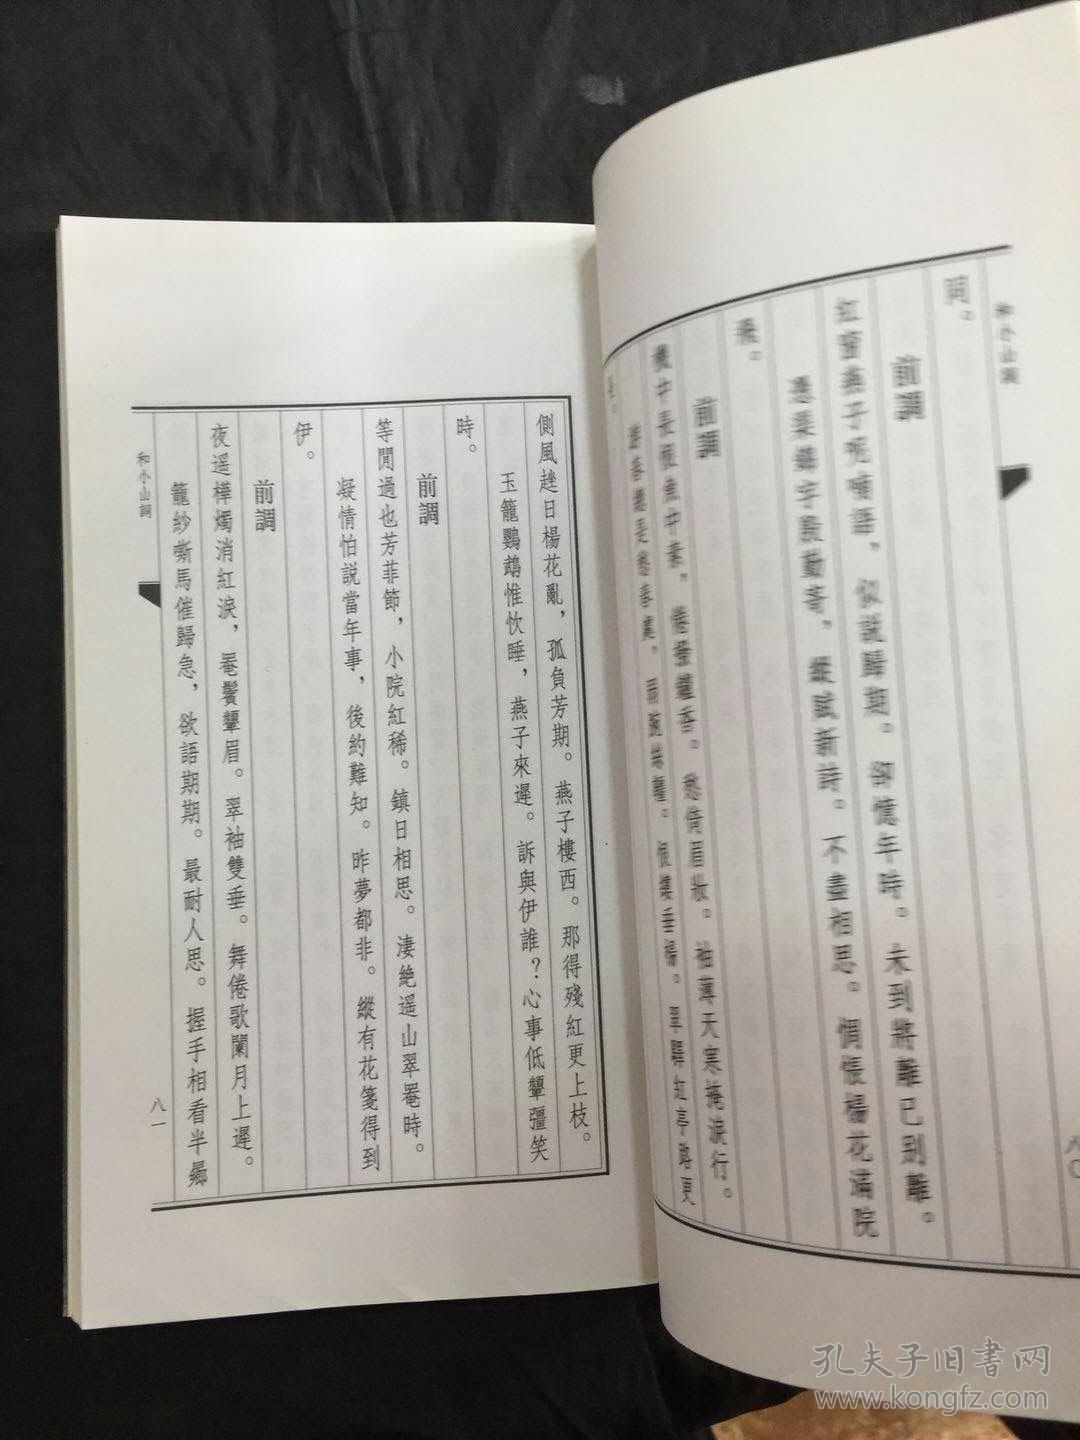 和小山詞
同。
前調
紅窗燕子呢喃語，似説歸期。卻憶年時。未到將離已别離。
憑欒錦字殷勤寄，縱賦新詩。不盡相思。惆悵楊花滿院
飛。
前調
機中長恨焦中葉，倦撥爐香。愁倚眉妝。袖薄天寒掩淚行。
游春總是愁春處，雨腕絲鞭。恨縷垂楊。翠驛紅亭路更
長。
八〇
側風趖日楊花亂，孤負芳期。燕子樓西。那得殘紅更上枝。
玉籠鸚鵡惟忺睡，燕子來遲。訴與伊誰？心事低顰彊笑
時。
前調
等閒過也芳菲節，小院紅稀。鎮日相思。淒絶遥山翠罨時。
凝情怕説當年事，後約難知。昨夢都非。縱有花箋得到
伊。
前調
夜遥樺燭消紅淚，罨鬢顰眉。翠袖雙垂。舞倦歌闌月上遲。
籠紗嘶馬催歸急，欲語期期。最耐人思。握手相看半晷
和小山詞
八一
孔夫子旧書网
www.kongfz.com